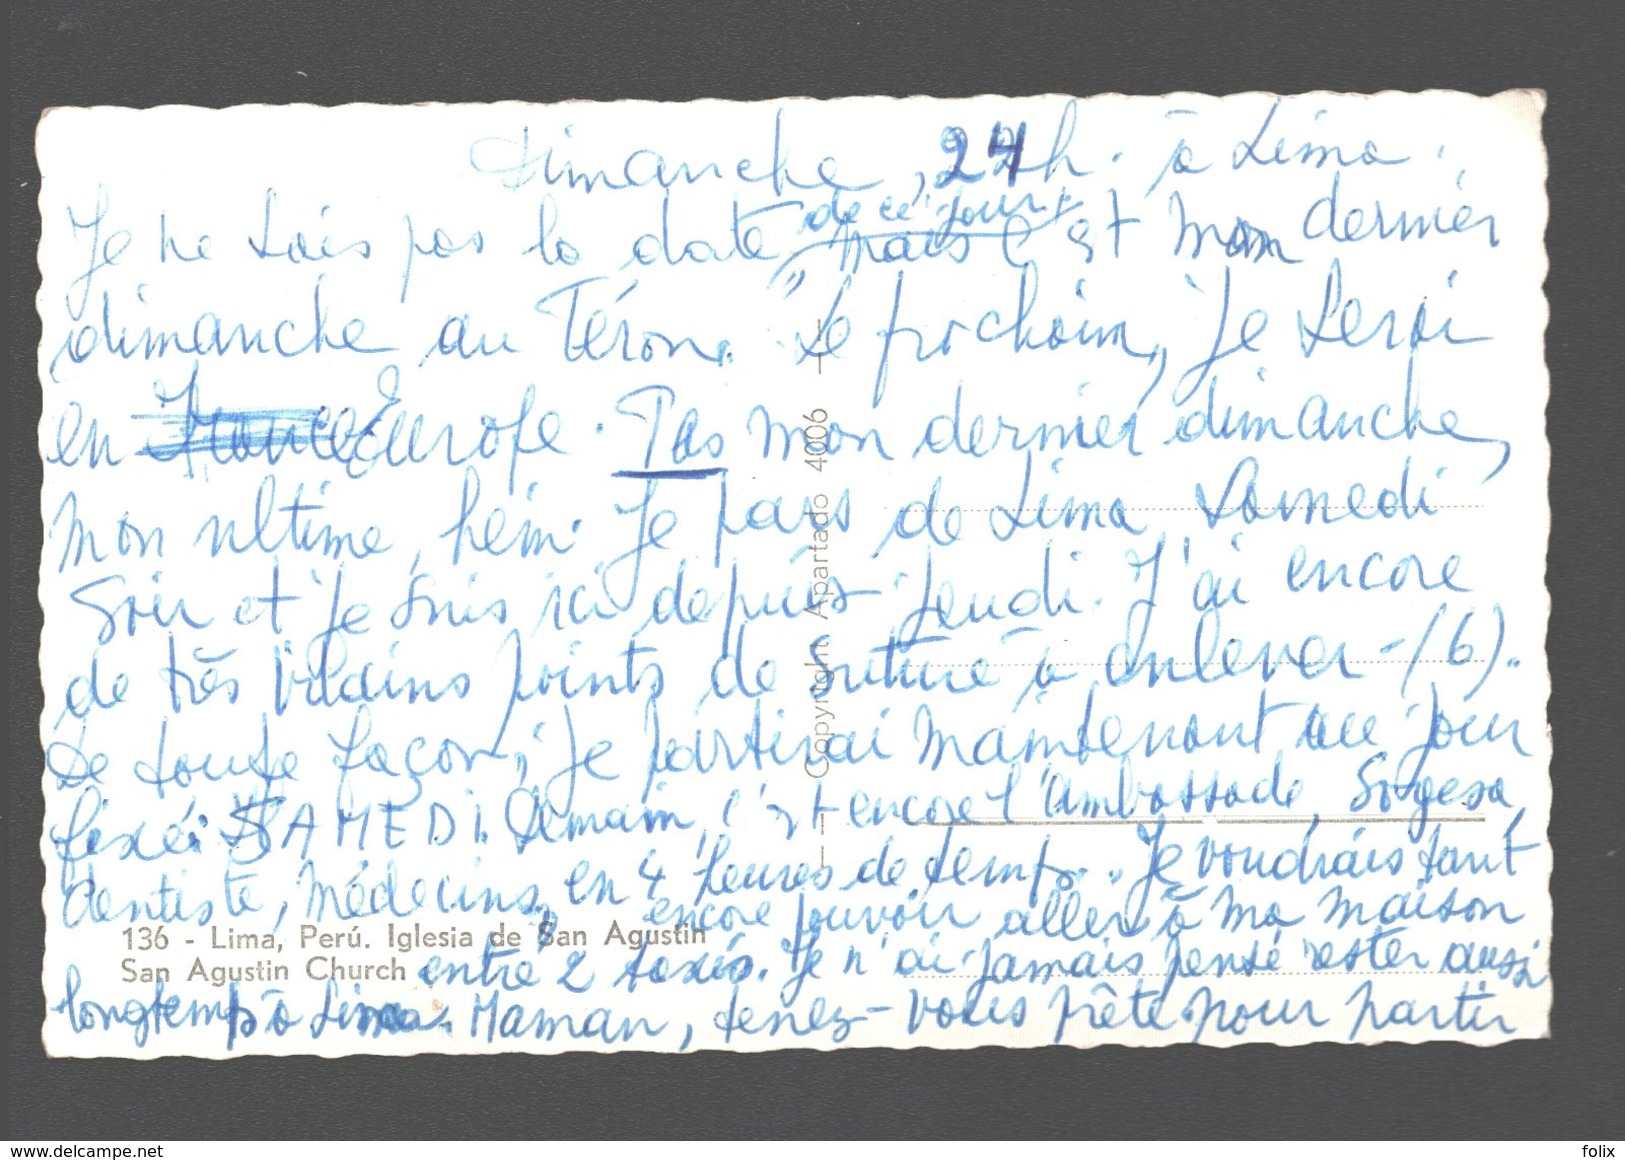 Dimanche, 24 h. à Lima.
Je ne sais pas la date de ce jour, mais c'est mon dernier
dimanche au Pérou. Le prochain, je serai
en Europe. Pas mon dernier dimanche,
mon ultime, hein. Je pars de Lima Samedi
soir et je suis ici depuis jeudi. J'ai encore
de très vilains points de suture à enlever - (6).
De toute façon, je partirai maintenant au jour
fixé: SAMEDI. Demain, c'est encore l'ambassade, Sogesa,
dentiste, médecins, en 4 heures de temps. Je voudrais tant
encore pouvoir aller à ma maison
136 - Lima, Perú. Iglesia de San Agustin
San Agustin Church
entre 2 taxis. Je n'ai jamais pensé rester aussi
longtemps à Lima. Maman, tenez-vous prête pour partir
— Copyright. Apartado 4006 —
delcampe.net
felix